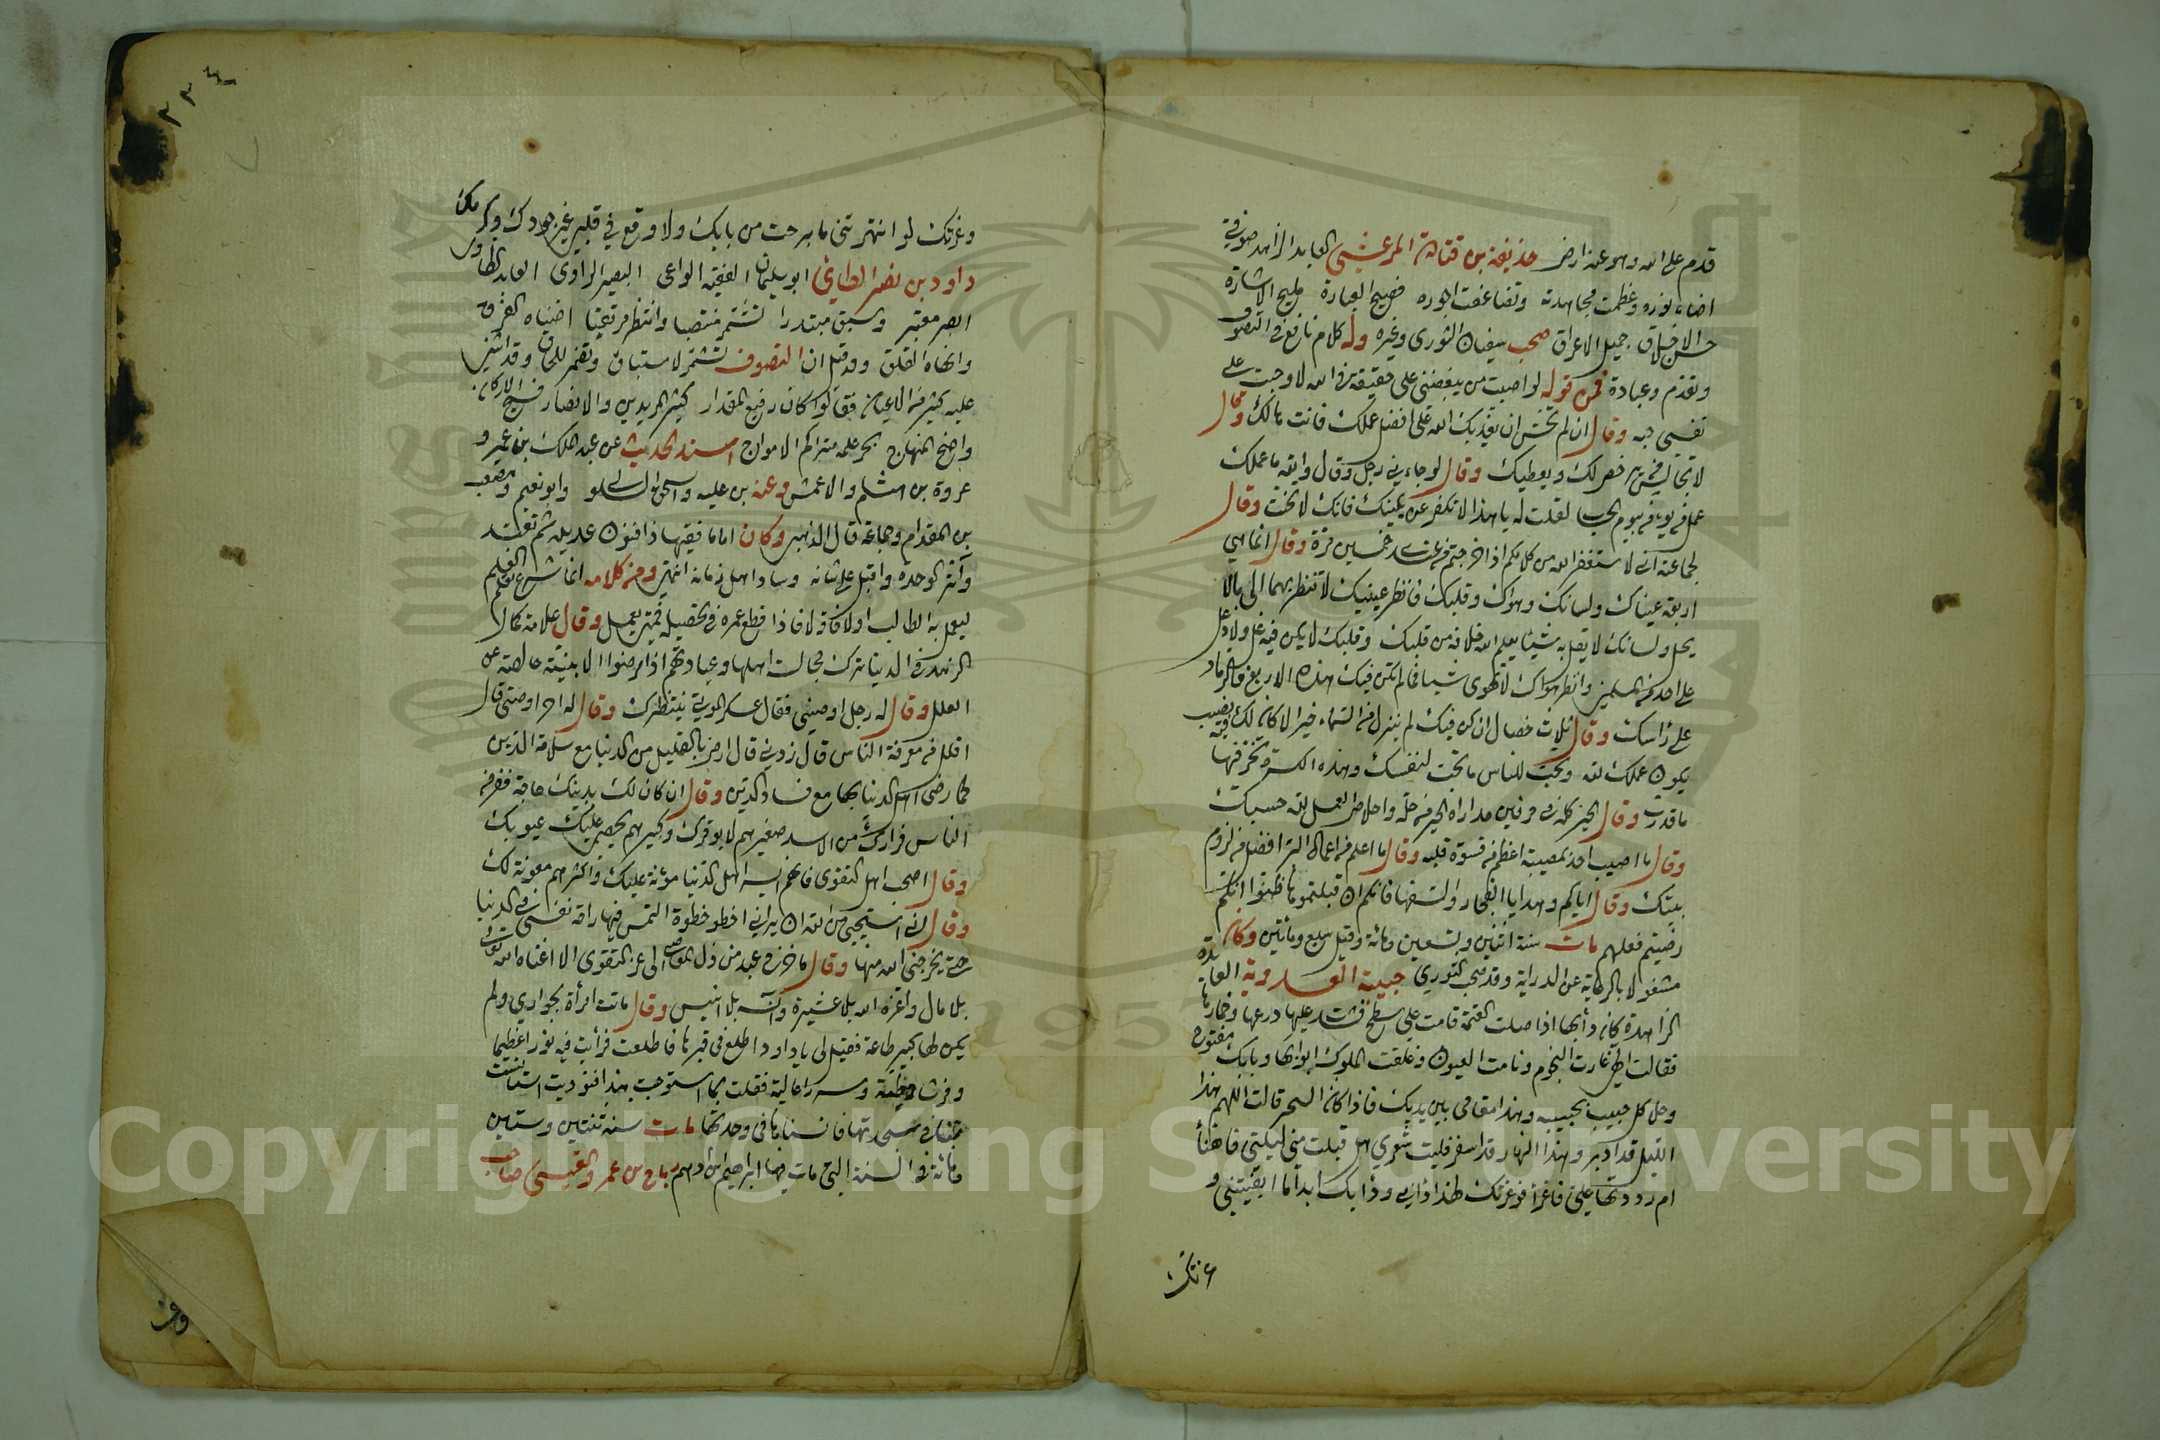 قدم على الله وهو عنه راض حذيفة بن قتادة المرعشي العابد الزاهد صوفي
اضاء نوره وعظمت مجاهدته وتضاعفت اجوره فصيح العبارة مليح الاشارة
حسن الاخلاق جميل الاعراق صحب سفيان الثوري وغيره وله كلام نافع في التصوف
وتقدم وعبادة فمن قوله لو اصبت من يبغضني على حقيقة في الله لاوجبت على
نفسي حبه وقال ان لم تخش ان يعذبك الله على افضل عملك فانت هالك وقال
وقال لو جاءني رجل وقال والله ما عملك
عمل من يؤمن بيوم الحساب لقلت له يا هذا لا تكفر عن يمينك فانك لا تحنث وقال
لجماعة اني لاستغفر الله من كلامكم اذا خرجتم من عندي خمسين مرة وقال انما هي
اربعة عيناك ولسانك وهواك وقلبك فانظر عينيك لا تنظر بهما الى ما لا
يحل ولسانك لا يقل به شيئا يعلم الله خلافه من قلبك وقلبك لا يكن فيه غل ولا دغل
على احد من المسلمين وانظر هواك لا تهوى شيئا فما لم تكن فيك هذه الاربع فالرماد
على راسك وقال ثلاث خصال ان كن فيك لم ينزل من السماء خير الا كان لك فيه نصيب
يكون عملك لله وتحب للناس ما تحب لنفسك وهذه الكسرة تحر فيها
ما قدرت وقال الخير كله في حرفين مداراه الخبز من حله واخلاص العمل لله حسبك
وقال ما اصيب احد بمصيبة اعظم من قسوة قلبه وقال ما اعلم من اعمال البر افضل من لزوم
بيتك وقال اياكم وهدايا الفجار والسفهاء فانكم ان قبلتموها ظنوا انكم
رضيتم فعلهم مات سنة اثنين وتسعين ومائة وقيل سبع ومائتين وكان
مشغولا بالرعاية عن الدراية وقد صحب الثوري حبيبة العدوية العابدة
الزاهدة كان دأبها اذا صلت العتمة قامت على سطح فشدت عليها درعها وخمارها
فقالت الهي غارت النجوم ونامت العيون وغلقت الملوك ابوابها وبابك مفتوح
وخلا كل حبيب بحبيبه وهذا مقامي بين يديك فاذا كان السحر قالت اللهم هذا
الليل قد ادبر وهذا النهار قد اسفر فليت شعري هل قبلت مني ليلتي فاهنأ
ام رددتها علي فاعزا فوعزتك لهذا دأبي ودأبك ابدا ما ابقيتني و
عزتك
وعزتك لو انتهرتني ما برحت من بابك ولا وقع في قلبي غير جودك وكرمك
داود بن نصر الطائي ابو سليمان الفقيه الواعي البصير الراوي العابد الطاوي
ابصر معتبر وسبق مبتدرا تشمر منتصبا وانتظر مرتقبا اضناه الفرق
وانهاه القلق وقد قيل ان التصوف تشمر لاستباق وتضمر للحاق وقد اثنى
عليه كثير من الاعيان فقالوا كان رفيع المقدار كثير المريدين والانصار
واضح المنهاج بحر علمه متراكم الامواج اسند الحديث عن عبد الملك بن عمير و
عروة بن هشام والاعمش وعنه بن علية واسحق السلولي وابو نعيم ومصعب
بن المقدام وجماعة قال الذهبي وكان اماما فقيها ذا فنون عديدة ثم تعبد
وآثر الوحدة واقبل على شانه وساد اهل زمانه انتهى ومن كلامه انما شرع تعلم العلم
ليعمل به الطالب اولا فاولا فاذا قطع عمره في تحصيله فمتى يعمل وقال علامة كمال
الزهد في الدنيا ترك مجالسة اهلها وعيادتهم اذا مرضوا الا بنية خالصة من
العلل وقال له رجل اوصيني فقال عسكر الموتى ينتظرك وقال له اخر اوصني قال
اقلل من معرفة الناس قال زدني قال ارض بالقليل من الدنيا مع سلامة الدين
كما رضى اهل الدنيا بها مع فساد الدين وقال ان كان لك بدينك حاجة ففر من
الناس فرارك من الاسد صغيرهم لا يوقرك وكبيرهم يحصي عليك عيوبك
وقال اصحب اهل التقوى فانهم ايسر اهل الدنيا مؤنة عليك واكثرهم معونة لك
وقال اني لاستحيي من الله ان يراني اخطو خطوة التمس فيها راحة نفسي في الدنيا
حتى يخرجني الله منها وقال ما خرج عبد من ذل المعاصي الى عز التقوى الا اغناه الله تعالى
بلا مال واعزه الله بلا عشيرة وآنسه بلا انيس وقال ماتت امرأة بجواري ولم
يكن لها كبير طاعة فقيل لي يا داود اطلع في قبرها فاطلعت فرأيت فيه نورا عظيما
وفرشا وطيئة وسررا عالية فقلت بما استوجبت هذا فنوديت استانست
بنا في سجدتها فانسناها في وحدتها مات سنة ثنتين وستين
ومائة في السنة التي مات فيها ابراهيم بن ادهم رباح بن عمرو القيسي صاحب